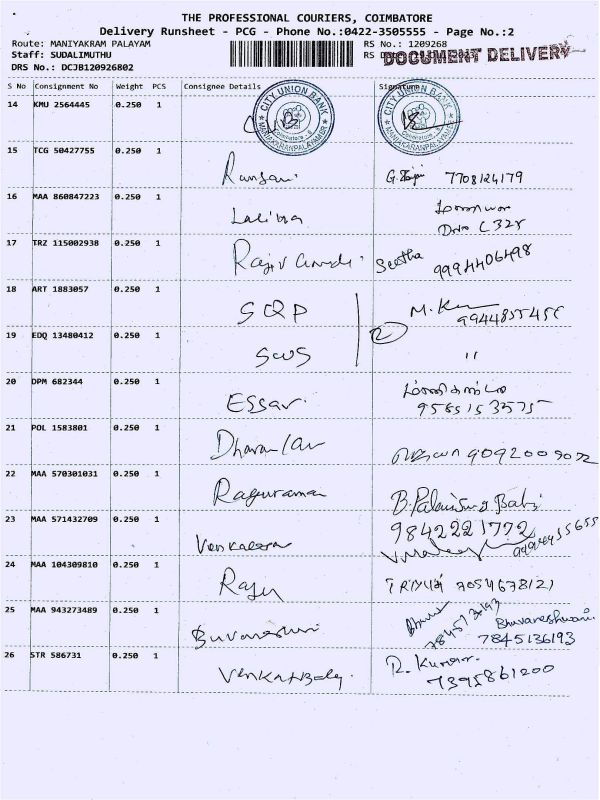 THE PROFESSIONAL COURIERS, COIMBATORE
Delivery Runsheet - PCG - Phone No.:0422-3505555 - Page No.:2
Route: MANIYAKRAM PALAYAM RS No.: 1209268
Staff: SUDALIMUTHU RS D DOCUMENT DELIVERY
DRS No.: DCJB120926802
S No Consignment No Weight PCS Consignee Details Signature
14 KMU 2564445 0.250 1 CUB CITY UNION BANK CITY UNION BANK
15 TCG 50427755 0.250 1 Ranjani 7708124179
16 MAA 860847223 0.250 1 Lalitha
C 328
17 TRZ 115002938 0.250 1 Rajiv Seetha 9994406498
18 ART 1883057 0.250 1 SQP 2 M. 9944855455
19 EDQ 13480412 0.250 1 SWS "
20 DPM 682344 0.250 1 Essar
21 POL 1583801 0.250 1 9092009072
22 MAA 570301031 0.250 1 Raguraman B. Palani Babu
9842221772
23 MAA 571432709 0.250 1
24 MAA 104309810 0.250 1 Raju 7054678121
25 MAA 943273489 0.250 1 Buvaneswari 7845136193 Bhuvaneshwari
7845136193
26 STR 586731 0.250 1 R. Kumar
7395861200